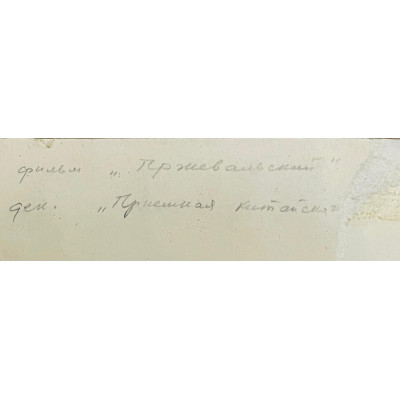 фильм „Пржевальский"
дек. „Приемная китайская